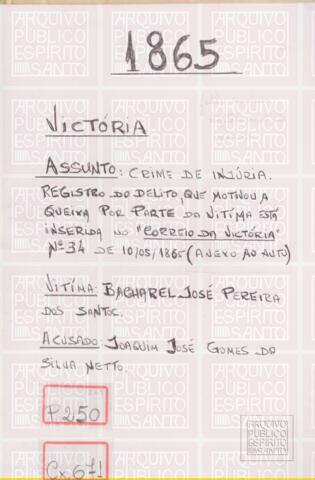 1865
VICTÓRIA
ASSUNTO: CRIME DE INJÚRIA.
REGISTRO DO DELITO, QUE MOTIVOU A
QUEIXA POR PARTE DA VITÍMA ESTÁ
INSERIDA NO "CORREIO DA VICTÓRIA"
Nº 34 DE 10/05/1865 (ANEXO AO AUTO)
VITÍMA: BACHAREL JOSÉ PEREIRA
DOS SANTOS.
ACUSADO: JOAQUIM JOSÉ GOMES DA
SILVA NETTO.
P.250
Cx.671
ARQUIVO
PÚBLICO
ESPÍRITO
SANTO